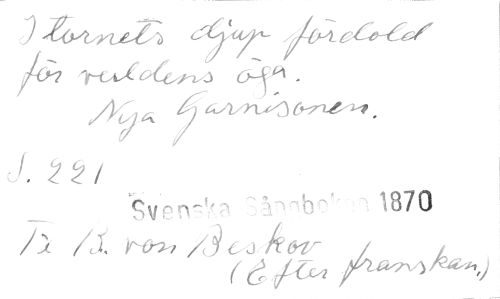 I tornets djup fördold
för verldens öga.
Nya Garnisonen.
S. 221
Svenska Sångboken 1870
Tr B. von Beskov
(Efter franskan.)